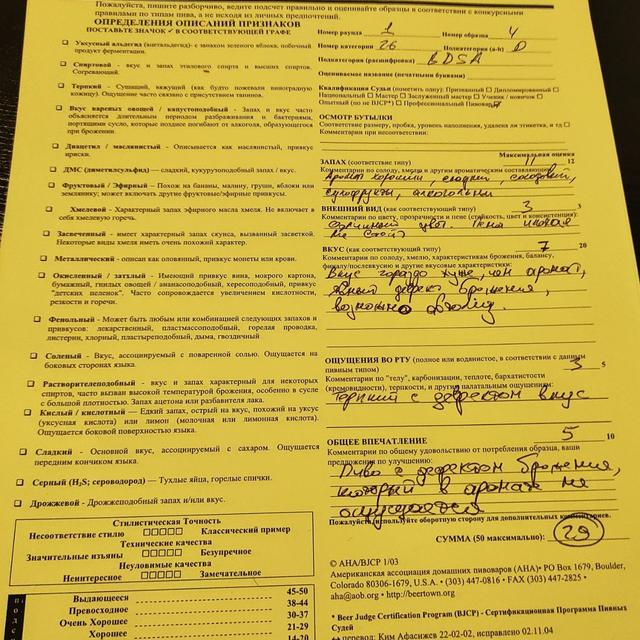 Пожалуйста, пишите разборчиво, ведите подсчет правильно и оценивайте образцы в соответствии с конкурсными
правилами по типам пива, а не исходя из личных предпочтений.
ОПРЕДЕЛЕНИЯ ОПИСАНИЙ ПРИЗНАКОВ
ПОСТАВЬТЕ ЗНАЧОК ✓ В СООТВЕТСТВУЮЩЕЙ ГРАФЕ
Уксусный альдегид (ацетальдегид) - с запахом зеленого яблока, побочный
продукт ферментации.
Спиртовой - вкус и запах этилового спирта и высших спиртов.
Согревающий.
Терпкий - Сушащий, вяжущий (как будто пожевали виноградную
кожицу). Ощущение часто связано с присутствием танинов.
Вкус вареных овощей / капустоподобный - Запах и вкус часто
объясняется длительным периодом разбраживания и бактериями,
портящими сусло, которые позднее погибают от алкоголя, образующегося
при брожении.
Диацетил / маслянистый - Описывается как маслянистый, привкус
ириски.
ДМС (диметилсульфид) — сладкий, кукурузоподобный запах / вкус.
Фруктовый / Эфирный – Похож на бананы, малину, груши, яблоки или
землянику; может включать другие фруктовые/эфирные привкусы.
Хмелевой - Характерный запах эфирного масла хмеля. Не включает в
себя хмелевую горечь.
Засвеченный - имеет характерный запах скунса, вызванный засветкой.
Некоторые виды хмеля имеют очень похожий характер.
Металлический - описан как оловянный, привкус монеты или крови.
Окисленный / затхлый - Имеющий привкус вина, мокрого картона,
бумажный, гнилых овощей / ананасоподобный, хересоподобный, привкус
"детских пеленок". Часто сопровождается увеличением кислотности,
резкости и горечи.
Фенольный - Может быть любым или комбинацией следующих запахов и
привкусов: лекарственный, пластмассоподобный, горелая проводка,
листерин, хлорный, пластыреподобный, дыма, гвоздичный
Соленый - Вкус, ассоциируемый с поваренной солью. Ощущается на
боковых сторонах языка.
Растворителеподобный - вкус и запах характерный для некоторых
спиртов, часто вызван высокой температурой брожения, особенно в сусле
с большой плотностью. Запах ацетона или разбавителя лака.
Кислый / кислотный — Едкий запах, острый на вкус, похожий на уксус
(уксусная кислота) или лимон (молочная или лимонная кислота).
Ощущается боковой поверхностью языка.
Сладкий - Основной вкус, ассоциируемый с сахаром. Ощущается
передним кончиком языка.
Серный (H₂S; сероводород) — Тухлые яйца, горелые спички.
Дрожжевой - Дрожжеподобный запах и/или вкус.
Стилистическая Точность
Несоответствие стилю Классический пример
Технические качества
Значительные изъяны Безупречное
Неуловимые качества
Неинтересное Замечательное
Выдающееся 45-50
Превосходное 38-44
Очень Хорошее 30-37
Хорошее 21-29
14-20
Номер раунда 1 Номер образца 4
Номер категории 26 Подкатегория (a-h) D
Подкатегория (расшифровка) BDSA
Оцениваемое название (печатными буквами)
Квалификация Судьи (пометить одну): Признанный Дипломированный
Национальный Мастер Заслуженный мастер Ученик / новичок
Опытный (но не BJCP) Профессиональный Пивовар
ОСМОТР БУТЫЛКИ
Соответствие размеру, пробка, уровень наполнения, удалена ли этикетка, и тд
Комментарии при несоответствии:
Максимальная оценка
ЗАПАХ (соответствие типу) 11 12
Комментарии по солоду, хмелю и другим ароматическим составляющим
Аромат хороший, сладкий, солодовый,
сухофрукты, алкогольный
ВНЕШНИЙ ВИД (как соответствует типу) 3 3
Комментарии по цвету, прозрачности и пене (стойкость, цвет и консистенция):
цвет. Пена
не стойк
ВКУС (как соответствует типу) 7 20
Комментарии по солоду, хмелю, характеристикам брожения, балансу,
финалу/послевкусию и другие вкусовые характеристики:
Вкус гораздо хуже, чем аромат,
явный дефект брожения,
возможно
ОЩУЩЕНИЯ ВО РТУ (полное или водянистое, в соответствии с данным
пивным типом) 3 5
Комментарии по "телу", карбонизации, теплоте, бархатистости
(кремовидности), терпкости и другим палатальным ощущениям:
Терпкий с дефектом вкус
ОБЩЕЕ ВПЕЧАТЛЕНИЕ 5 10
Комментарии по общему удовольствию от потребления образца, ваши
предложения по улучшению:
Пиво с дефектом брожения,
который в аромате не
ощущается
Пожалуйста, используйте оборотную сторону для дополнительных комментариев.
СУММА (50 максимально): 29
© AHA/BJCP 1/03
Американская ассоциация домашних пивоваров (AHA)• PO Box 1679, Boulder,
Colorado 80306-1679, U.S.A. • (303) 447-0816 • FAX (303) 447-2825 •
aha@aob.org • http://beertown.org
* Beer Judge Certification Program (BJCP) - Сертификационная Программа Пивных
Судей
перевод: Ким Афасижев 22-02-02, исправлено 02.11.04